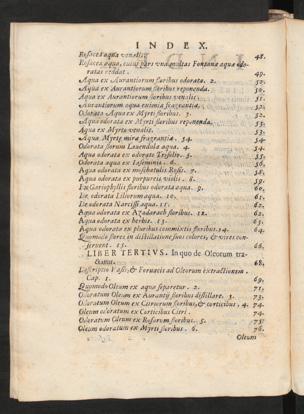 INDEX.
Rosacea aqua venalis. 48.
Rosacea aqua, cuius pars vna multas Fontanæ aquæ odo-
ratas reddat. 49.
Aqua ex Aurantiorum floribus odorata. 2. 50.
Aqua ex Aurantiorum floribus reponenda. 50.
Aqua ex Aurantiorum floribus venalis. 51.
Aurantiorum aqua eximia fragrantia. 52.
Odorata Aqua ex Myrti floribus. 3. 52.
Aqua odorata ex Myrti floribus reponenda. 53.
Aqua ex Myrto venalis. 53.
Aqua Myrtea mira fragrantia. 54. 54.
Odorata florum Lauendulæ aqua. 4. 54.
Aqua odorata ex odorato Trifolio. 5. 55.
Odorata aqua ex Iesminis. 6. 56.
Aqua odorata ex moschatulis Rosis. 7. 58.
Aqua odorata ex purpureis violis. 8. 59.
Ex Gariophyllis floribus odorata aqua. 9. 60.
Ex odorata Liliorum aqua. 10. 61.
Ex odorata Narcissi aqua. 11. 62.
Aqua odorata ex Azadarach floribus. 12. 62.
Aqua odorata ex herbis. 13. 63.
Aqua odorata ex pluribus commixtis floribus. 14. 64.
Quomodo flores in distillatione suos colores, & vires con-
seruent. 15. 66.
LIBER TERTIVS. In quo de Oleorum tra-
ctamus. 68.
Descriptio Vasis, & Fornacis ad Oleorum extractionem.
Cap. 1. 69.
Quomodo Oleum ex aqua separetur. 2. 71.
Odoratum Oleum ex Aurantij floribus distillare. 3. 73.
Odoratum Oleum ex Citriorum floribus, & corticibus. 4. 74.
Oleum odoratum ex Corticibus Citri. 74.
Odoratum Oleum ex Rosarum floribus. 5. 75.
Oleum odoratum ex Myrti floribus. 6. 76.
Oleum